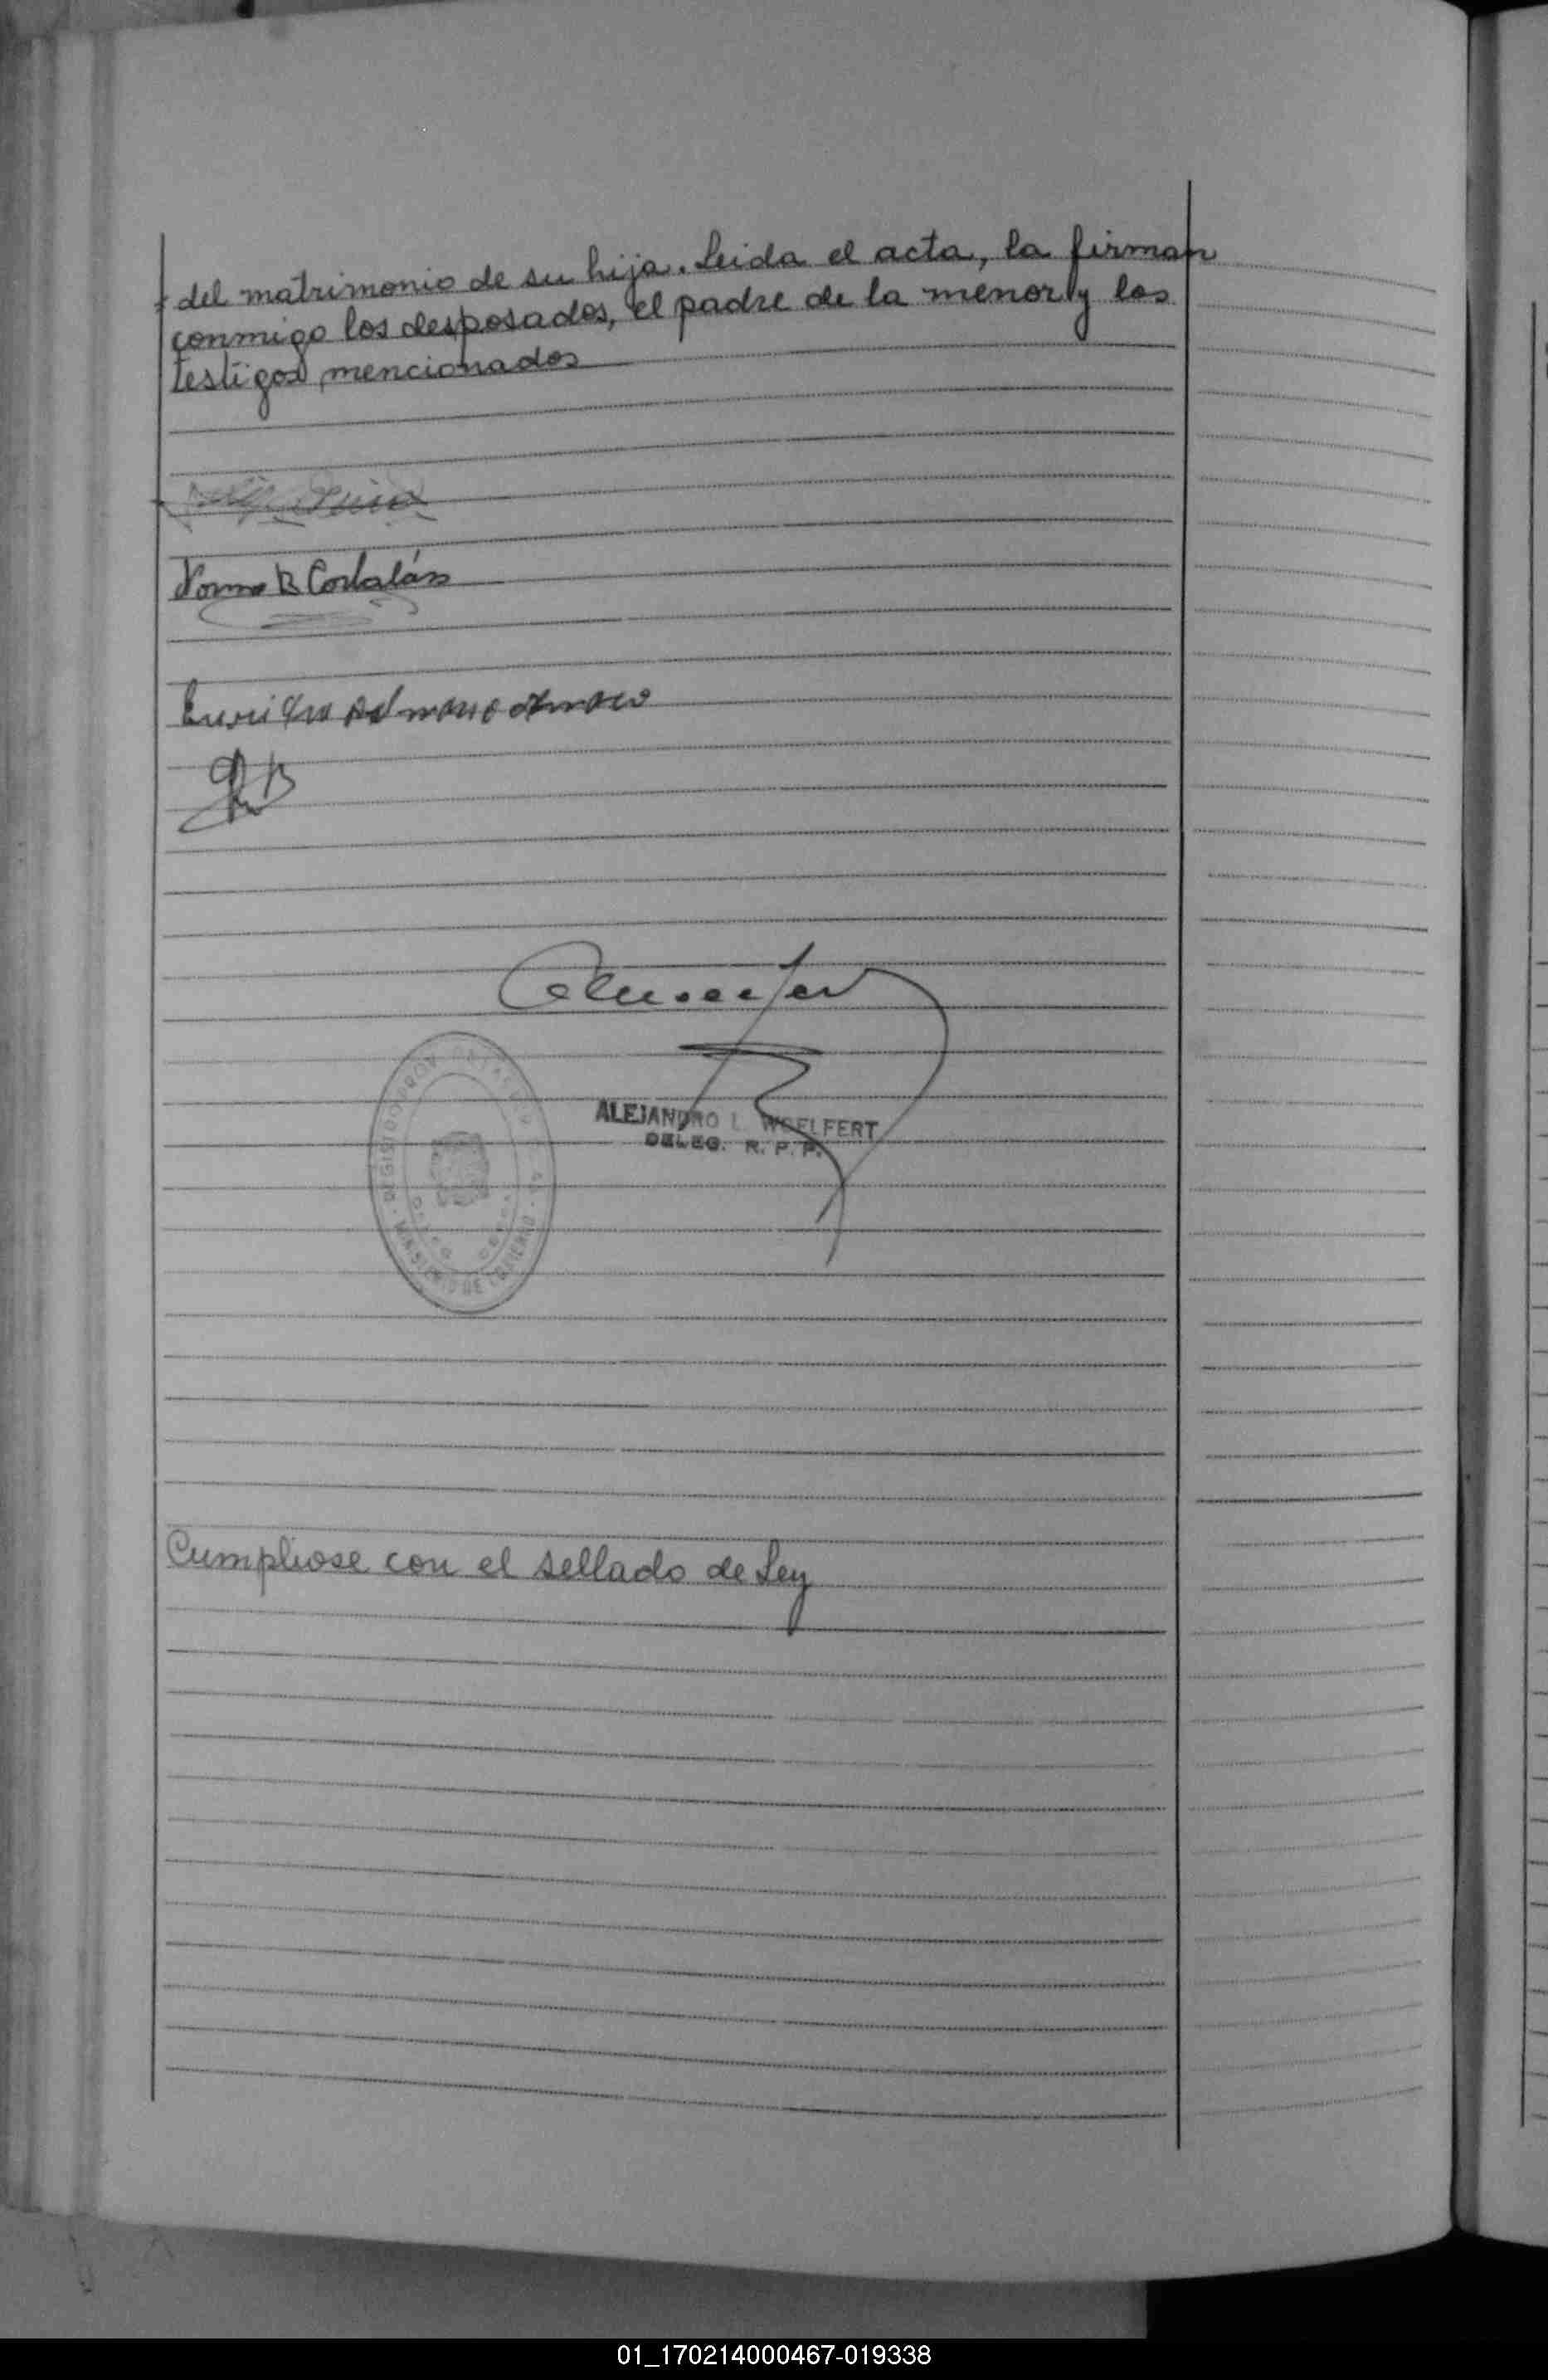 del matrimonio de su hija. Leida el acta, la firman
conmigo los desposados, el padre de la menor y los
testigos mencionados
Norma B Corbalán
ALEJANDRO L. WOELFERT
DELEG. R. P. P.
MINISTERIO DE GOBIERNO
Cumpliose con el sellado de Ley
01_170214000467-019338